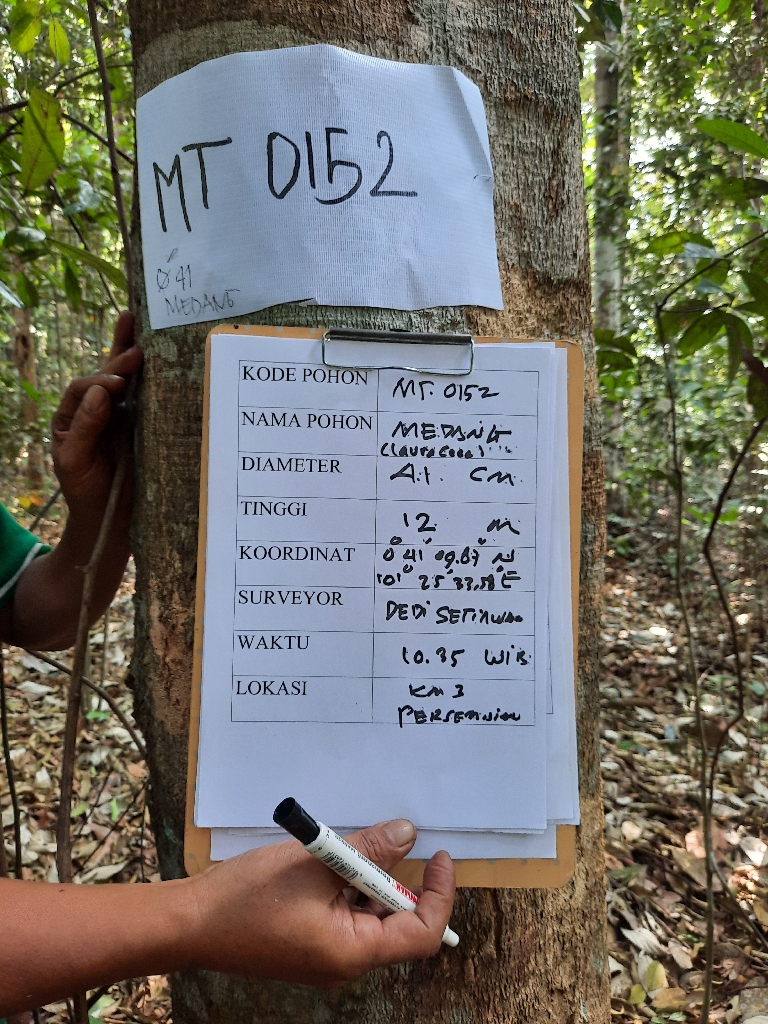 MT 0152
Ø 41
MEDANG
KODE POHON MT. 0152
NAMA POHON MEDANG
DIAMETER 41 CM
TINGGI 12 M
KOORDINAT 0° 41' 09.67" N
101° 25' 33.58" E
SURVEYOR DEDI SETIAWAN
WAKTU 10.35 WIB
LOKASI KM 3
PERSEMAIAN